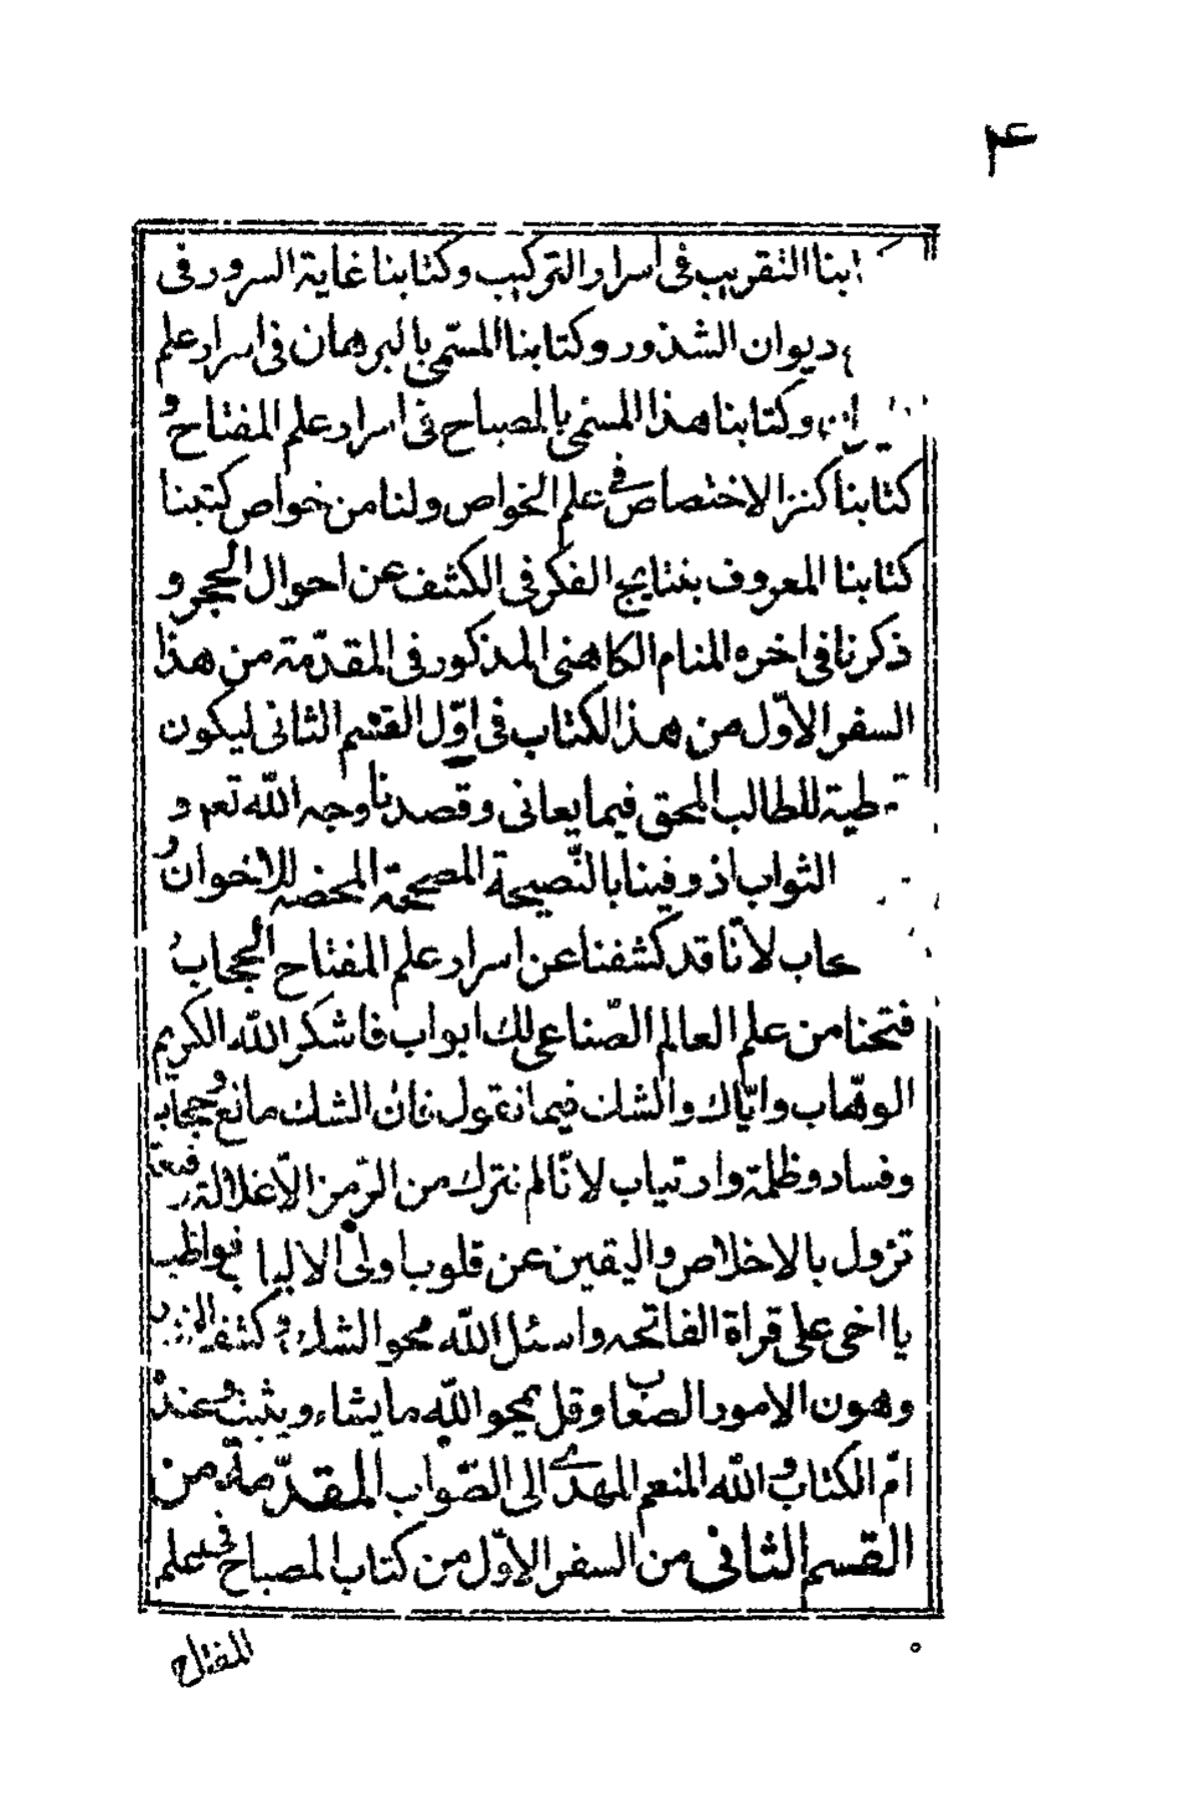 ۴
ابنا التقريب فى اسرار التركيب وكتابنا غاية السرور فى
ديوان الشذور وكتابنا المسمّى بالبرهان فى اسرار علم
وكتابنا هذا المسمى بالمصباح فى اسرار علم المفتاح و
كتابنا كنز الاختصاص فى علم الخواص ولنا من خواص كتبنا
كتابنا المعروف بنتايج الفكر فى الكشف عن احوال الحجر و
ذكرنا فى اخره المنام الكاهنى المذكور فى المقدّمة من هذا
السفر الاوّل من هذا الكتاب فى اوّل القسم الثانى ليكون
طية للطالب المحق فيما يعانى وقصدنا وجه اللّه تعم و
الثواب اذ وفينا بالنّصيحة المصححة المحضه للاخوان و
حاب لانّا قد كشفنا عن اسرار علم المفتاح الحجاب و
فتحنا من علم العالم الصّناعى لك ابواب فاشكر اللّه الكريم
الوهّاب وايّاك والشك فيما نقول فان الشك مانع وحجاب
وفساد وظلمة وارتياب لانّا لم نترك من الرّمز الّا غلالة رقيقة
تزول بالاخلاص واليقين عن قلوب اولى الالباب فواظب
يا اخى على قراة الفاتحه واسئل اللّه محو الشك و كشف
وهون الامور الصعاب وقل يمحو اللّه ما يشاء ويثبت وعنده
امّ الكتاب و اللّه المنعم المهدى الى الصّواب المقدّمة من
القسم الثانى من السفر الاوّل من كتاب المصباح فى علم
المفتاح